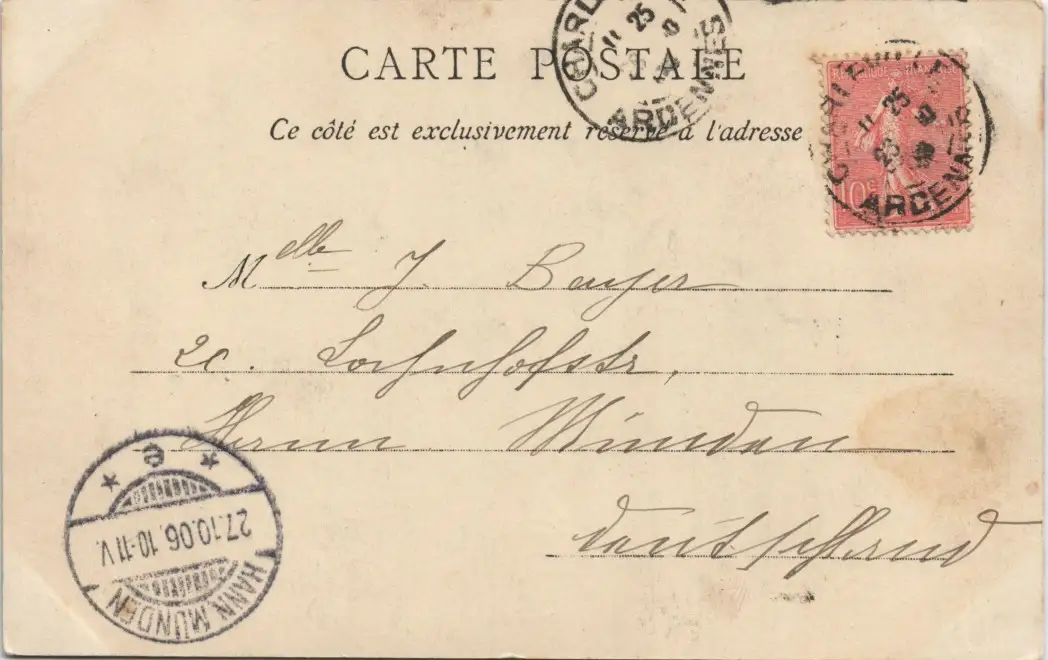 CARTE POSTALE
Ce côté est exclusivement réservé à l'adresse
CHARLEVILLE
25
ARDENNES
REPUBLIQUE FRANÇAISE
10c
CHARLEVILLE
25
ARDENNES
Melle J. Beyer
20. Bahnhofstr,
Hann Münden
Deutschland
e
27.10.06. 10-11 V.
HANN. MÜNDEN